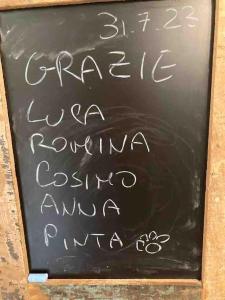 31.7.23
GRAZIE
LUCA
ROMINA
COSIMO
ANNA
PINTA